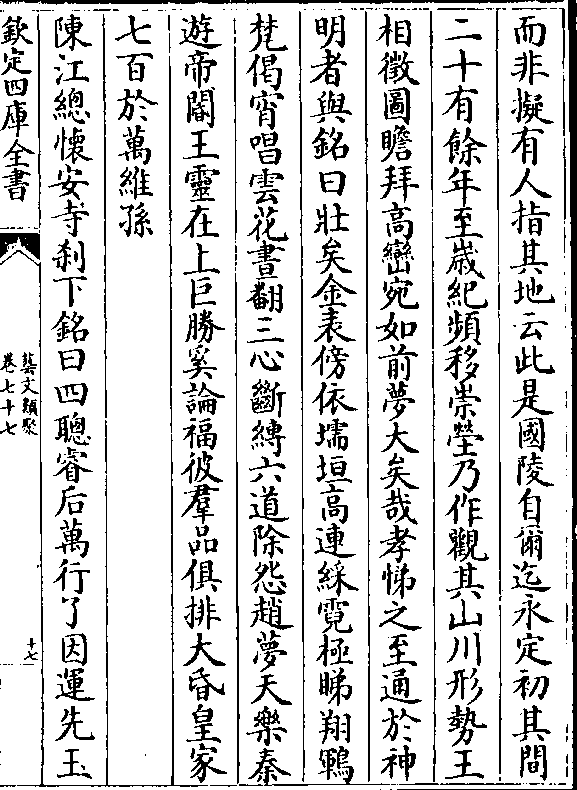 而非擬有人指其地云此是國陵自爾迄永定初其間
二十有餘年至歳紀頻移崇塋乃作觀其山川形勢王
相徵圖瞻拜高巒宛如前夢大矣哉孝悌之至通於神
明者與銘曰壯矣金表傍依壖垣高連綵霓極睇翔鵾
梵偈宵唱雲花晝翻三心斷縛六道除怨趙夢天樂秦
遊帝閽王靈在上巨勝奚論福彼羣品俱排大昏皇家
七百於萬維孫
陳江總懷安寺刹下銘曰四聰睿后萬行了因運先玉
欽定四庫全書
藝文類聚
卷七十七
十七